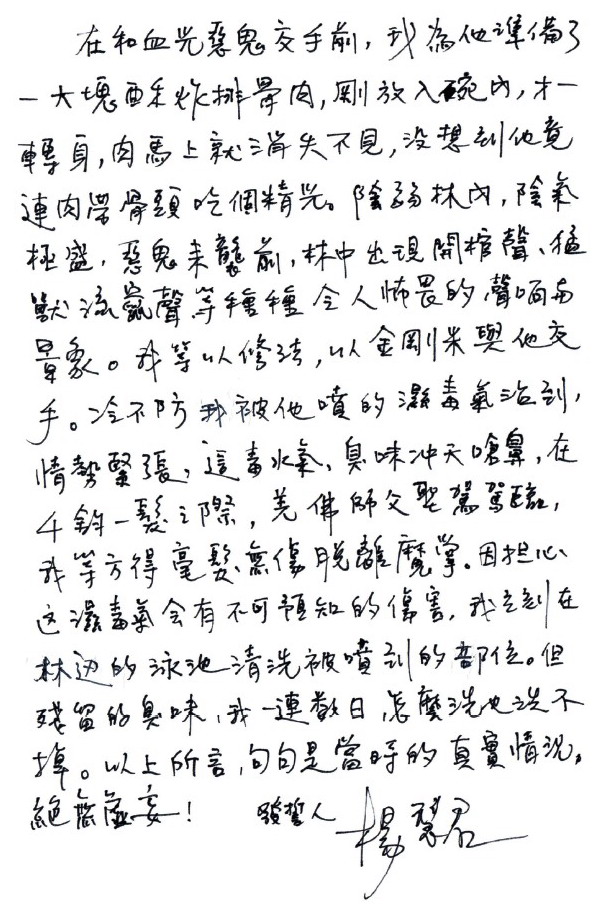 在和血光惡鬼交手前，我為他準備了
一大塊酥炸排骨肉，剛放入碗內，才一
轉身，肉馬上就消失不見，没想到他竟
連肉帶骨頭吃個精光。陰弱林內，陰氣
極盛，惡鬼未襲前，林中出現開棺聲、猛
獸流氣聲等種種令人怖畏的聲响与
景象。我等以修法，以金剛米與他交
手。冷不防我被他噴的濕毒氣沾到，
情勢緊張，這毒水氣，臭味冲天嗆鼻，在
千鈞一髮之際，羌佛師父聖駕駕臨，
我等方得毫髮無傷脱離魔掌。因担心
这濕毒氣会有不可預知的傷害，我立刻在
林边的泳池清洗被噴到的部位。但
殘留的臭味，我一連數日，怎麼洗也洗不
掉。以上所言，句句是當時的真實情况，
絕無虛妄！ 發誓人 楊慧君